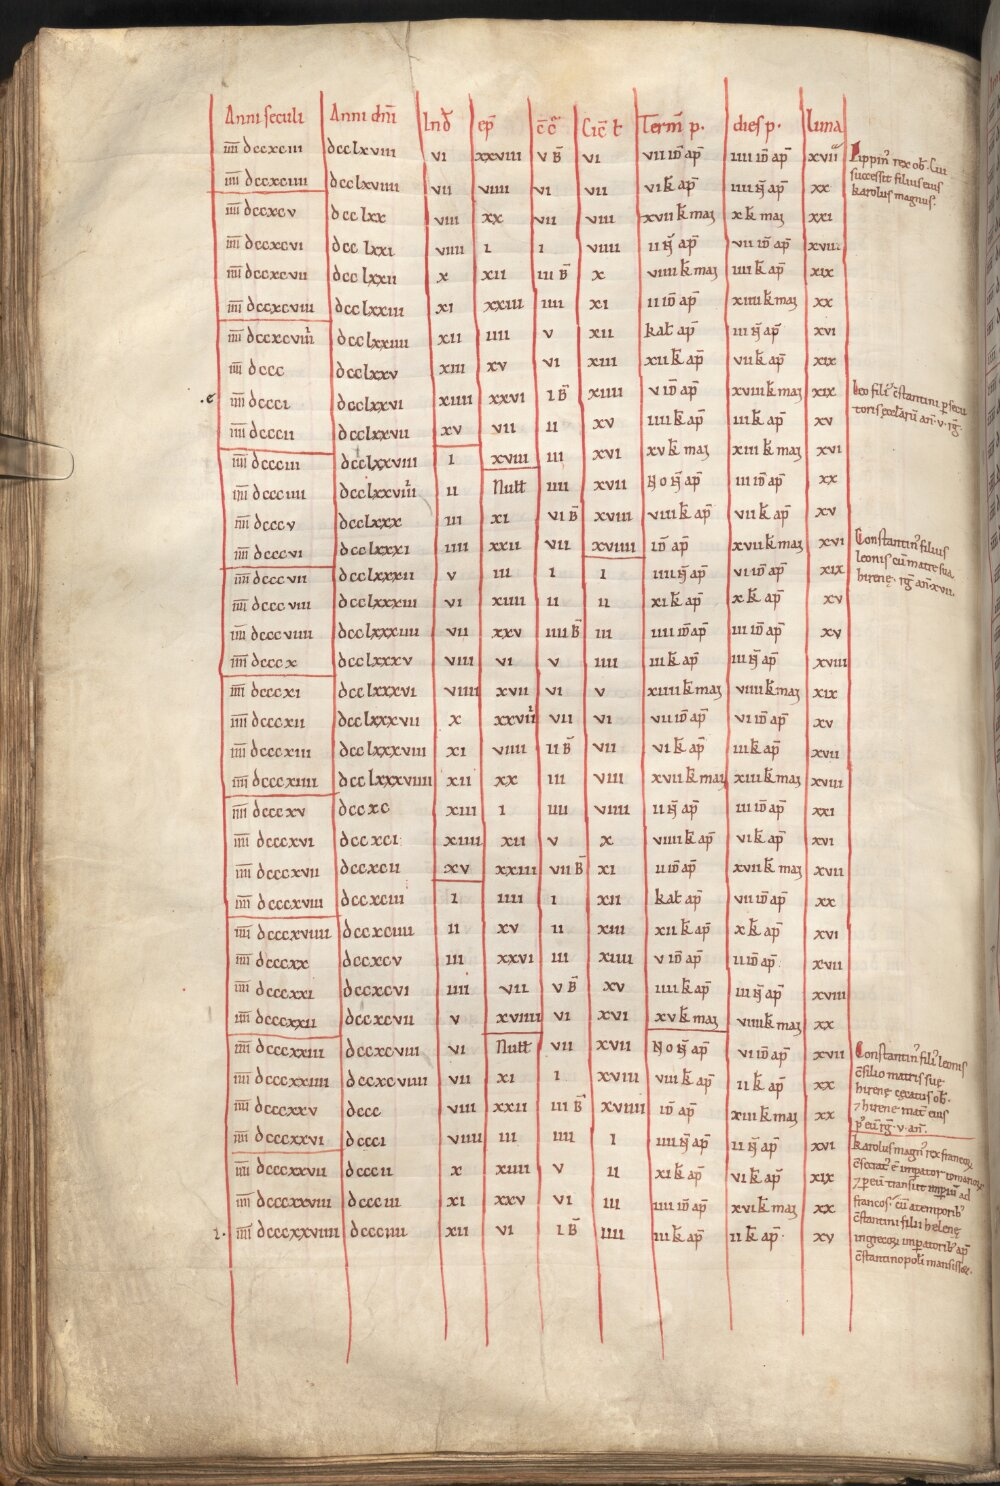 Anni seculi Anni dn̄i Ind̄ ep̄ c̄c̄ Cic̄ ł Term̄ p. dies p. luna
īīīī dccxciii dcclxviii vi xxviii v B̄ vi vii id̄ ap̄ iiii id̄ ap̄ xvii
īīīī dccxciiii dcclxviiii vii viiii vi vii vi k̄ ap̄ iiii ñ ap̄ xx
īīīī dccxcv dcclxx viii xx vii viii xvii k̄ maȷ x k̄ maȷ xxi
īīīī dccxcvi dcclxxi viiii i i viiii ii ñ ap̄ vii id̄ ap̄ xviii
īīīī dccxcvii dcclxxii x xii iii B̄ x viiii k̄ maȷ iiii k̄ ap̄ xix
īīīī dccxcviii dcclxxiii xi xxiii iiii xi ii id̄ ap̄ xiiii k̄ maȷ xx
īīīī dccxcviiii dcclxxiiii xii iiii v xii kał ap̄ iii ñ ap̄ xvi
īīīī dccc dcclxxv xiii xv vi xiii xii k̄ ap̄ vii k̄ ap̄ xix
īīīī dccci dcclxxvi xiiii xxvi i B̄ xiiii v id̄ ap̄ xviii k̄ maȷ xix
īīīī dcccii dcclxxvii xv vii ii xv iiii k̄ ap̄ iii k̄ ap̄ xv
īīīī dccciii dcclxxviii i xviii iii xvi xv k̄ maȷ xiii k̄ maȷ xvi
īīīī dccciiii dcclxxviiii ii Nułł iiii xvii Noñ ap̄ iii id̄ ap̄ xx
īīīī dcccv dcclxxx iii xi vi B̄ xviii viii k̄ ap̄ vii k̄ ap̄ xv
īīīī dcccvi dcclxxxi iiii xxii vii xviiii id̄ ap̄ xvii k̄ maȷ xvi
īīīī dcccvii dcclxxxii v iii i i iiii ñ ap̄ vi id̄ ap̄ xix
īīīī dcccviii dcclxxxiii vi xiiii ii ii xi k̄ ap̄ x k̄ ap̄ xv
īīīī dcccviiii dcclxxxiiii vii xxv iiii B̄ iii iiii id̄ ap̄ iii id̄ ap̄ xv
īīīī dcccx dcclxxxv viii vi v iiii iii k̄ ap̄ iii ñ ap̄ xviii
īīīī dcccxi dcclxxxvi viiii xvii vi v xiiii k̄ maȷ viiii k̄ maȷ xix
īīīī dcccxii dcclxxxvii x xxviii vii vi vii id̄ ap̄ vi id̄ ap̄ xv
īīīī dcccxiii dcclxxxviii xi viiii ii B̄ vii vi k̄ ap̄ iii k̄ ap̄ xvii
īīīī dcccxiiii dcclxxxviiii xii xx iii viii xvii k̄ maȷ xiii k̄ maȷ xviii
īīīī dcccxv dccxc xiii i iiii viiii ii ñ ap̄ iii id̄ ap̄ xxi
īīīī dcccxvi dccxci xiiii xii v x viiii k̄ ap̄ vi k̄ ap̄ xvi
īīīī dcccxvii dccxcii xv xxiii vii B̄ xi ii id̄ ap̄ xvii k̄ maȷ xvii
īīīī dcccxviii dccxciii i iiii i xii kał ap̄ vii id̄ ap̄ xx
īīīī dcccxviiii dccxciiii ii xv ii xiii xii k̄ ap̄ x k̄ ap̄ xvi
īīīī dcccxx dccxcv iii xxvi iii xiiii v id̄ ap̄ ii id̄ ap̄ xvii
īīīī dcccxxi dccxcvi iiii vii v B̄ xv iiii k̄ ap̄ iii ñ ap̄ xviii
īīīī dcccxxii dccxcvii v xviiii vi xvi xv k̄ maȷ viiii k̄ maȷ xx
īīīī dcccxxiii dccxcviii vi Nułł vii xvii Noñ ap̄ vi id̄ ap̄ xvii
īīīī dcccxxiiii dccxcviiii vii xi i xviii viii k̄ ap̄ ii k̄ ap̄ xx
īīīī dcccxxv dccc viii xxii iii B̄ xviiii id̄ ap̄ xiii k̄ maȷ xx
īīīī dcccxxvi dccci viiii iii iiii i iiii ñ ap̄ ii ñ ap̄ xvi
īīīī dcccxxvii dcccii x xiiii v ii xi k̄ ap̄ vi k̄ ap̄ xix
īīīī dcccxxviii dccciii xi xxv vi iii iiii id̄ ap̄ xvi k̄ maȷ xx
īīīī dcccxxviiii dccciiii xii vi i B̄ iiii iii k̄ ap̄ ii k̄ ap̄ xv
Pippin' rex ob̄. Cui
successit filius eius
karolus magnus.
Leo fili' c̄stantini p̄secu
toris ecclarū an̄. v. rḡ.
Constantin' filius
leonis cū matre sua
hirenę. rḡ an̄. xvii.
Constantin' fili' leonis
c̄ filio matris suę
hirenę cęcatus ob̄.
⁊ hirene mat̄ eius
p' eū rḡ. v. an̄.
karolus magn' rex francoꝝ
c̄secrat' ē impator romanoꝝ
⁊ p eū transiit imperiū ad
francos. cū a temporib'
c̄stantini filii helenę
in grecoꝝ imperatorib' ap̄
c̄stantinopoli mansisset.